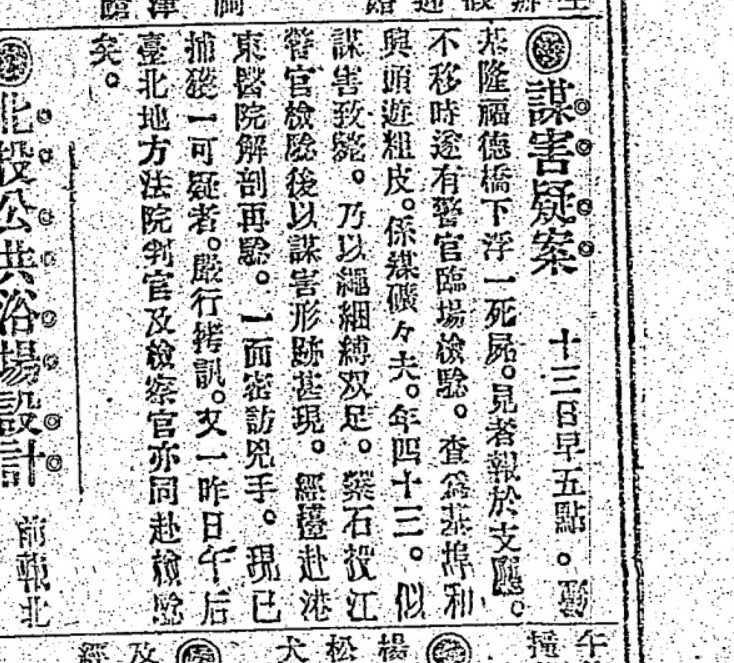 謀害疑案　十三日早五點。
基隆福德橋下浮一死屍。見者報於支廳。
不移時遂有警官臨場檢驗。查為基埠利
興頭遊粗皮。係煤礦々夫。年四十三。似
謀害致斃。乃以繩綑縛双足。繫石投江
警官檢驗後以謀害形跡甚現。經擡赴港
東醫院解剖再驗。一面密訪兇手。現已
捕獲一可疑者。嚴行拷訊。又一昨日午后
臺北地方法院判官及檢察官亦同赴檢驗
矣。
北投公共浴場設計　前報北